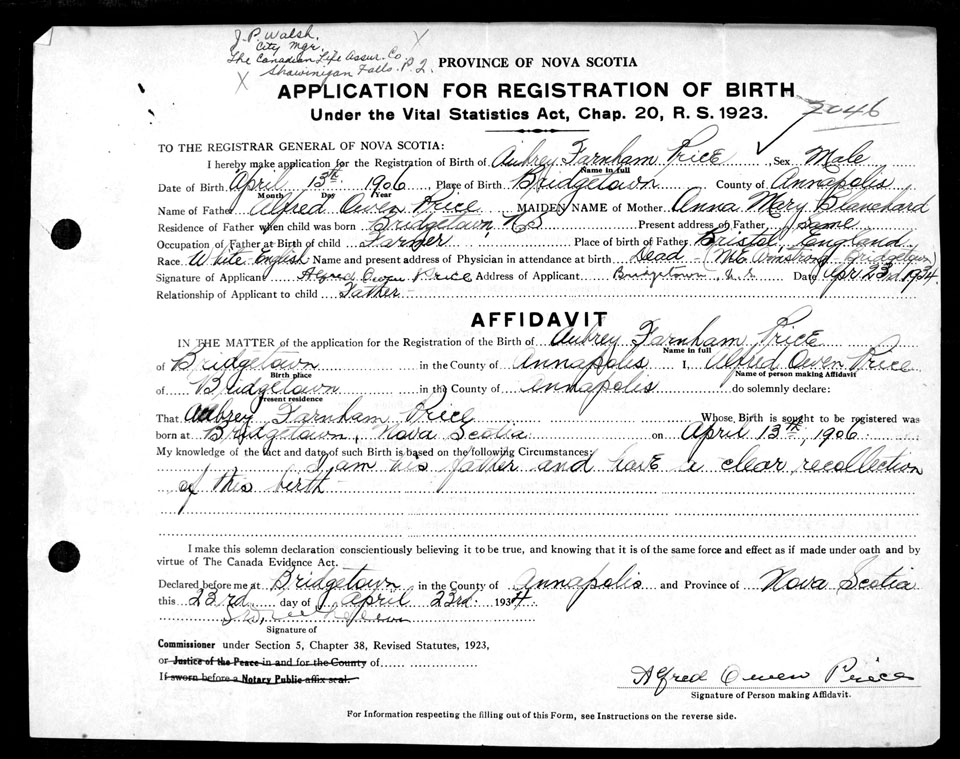 J. P. Walsh,
City Mgr.
The Canadian Life Assur. Co
Shawinigan Falls. P. Q.
PROVINCE OF NOVA SCOTIA
APPLICATION FOR REGISTRATION OF BIRTH
Under the Vital Statistics Act, Chap. 20, R. S. 1923.
2046
TO THE REGISTRAR GENERAL OF NOVA SCOTIA:
I hereby make application for the Registration of Birth of Aubrey Farnham Price, Sex Male
Name in full
Date of Birth April 13th 1906 Place of Birth Bridgetown County of Annapolis
Month Day Year
Name of Father Alfred Owen Price MAIDEN NAME of Mother Anna Mary Blanchard
Residence of Father when child was born Bridgetown, N S Present address of Father Same
Occupation of Father at Birth of child Farmer Place of birth of Father Bristol, England
Race White-English Name and present address of Physician in attendance at birth Dead - (M.E. Armstrong Bridgetown)
Signature of Applicant Alfred Owen Price Address of Applicant Bridgetown N. S. Date Apr 23rd 1934.
Relationship of Applicant to child Father -
AFFIDAVIT
IN THE MATTER of the application for the Registration of the Birth of Aubrey Farnham Price
Name in full
of Bridgetown in the County of Annapolis I, Alfred Owen Price
Birth place Name of person making Affidavit
of Bridgetown in the County of Annapolis do solemnly declare:
Present residence
That Aubrey Farnham Price Whose Birth is sought to be registered was
born at Bridgetown, Nova Scotia on April 13th, 1906
My knowledge of the fact and date of such Birth is based on the following Circumstances:
I am his father and have a clear recollection
of this birth -
I make this solemn declaration conscientiously believing it to be true, and knowing that it is of the same force and effect as if made under oath and by
virtue of The Canada Evidence Act.
Declared before me at Bridgetown in the County of Annapolis and Province of Nova Scotia
this 23rd day of April 23rd 1934
Signature of
Commissioner under Section 5, Chapter 38, Revised Statutes, 1923,
or Justice of the Peace in and for the County of
If sworn before a Notary Public affix seal.
Alfred Owen Price
Signature of Person making Affidavit.
For Information respecting the filling out of this Form, see Instructions on the reverse side.